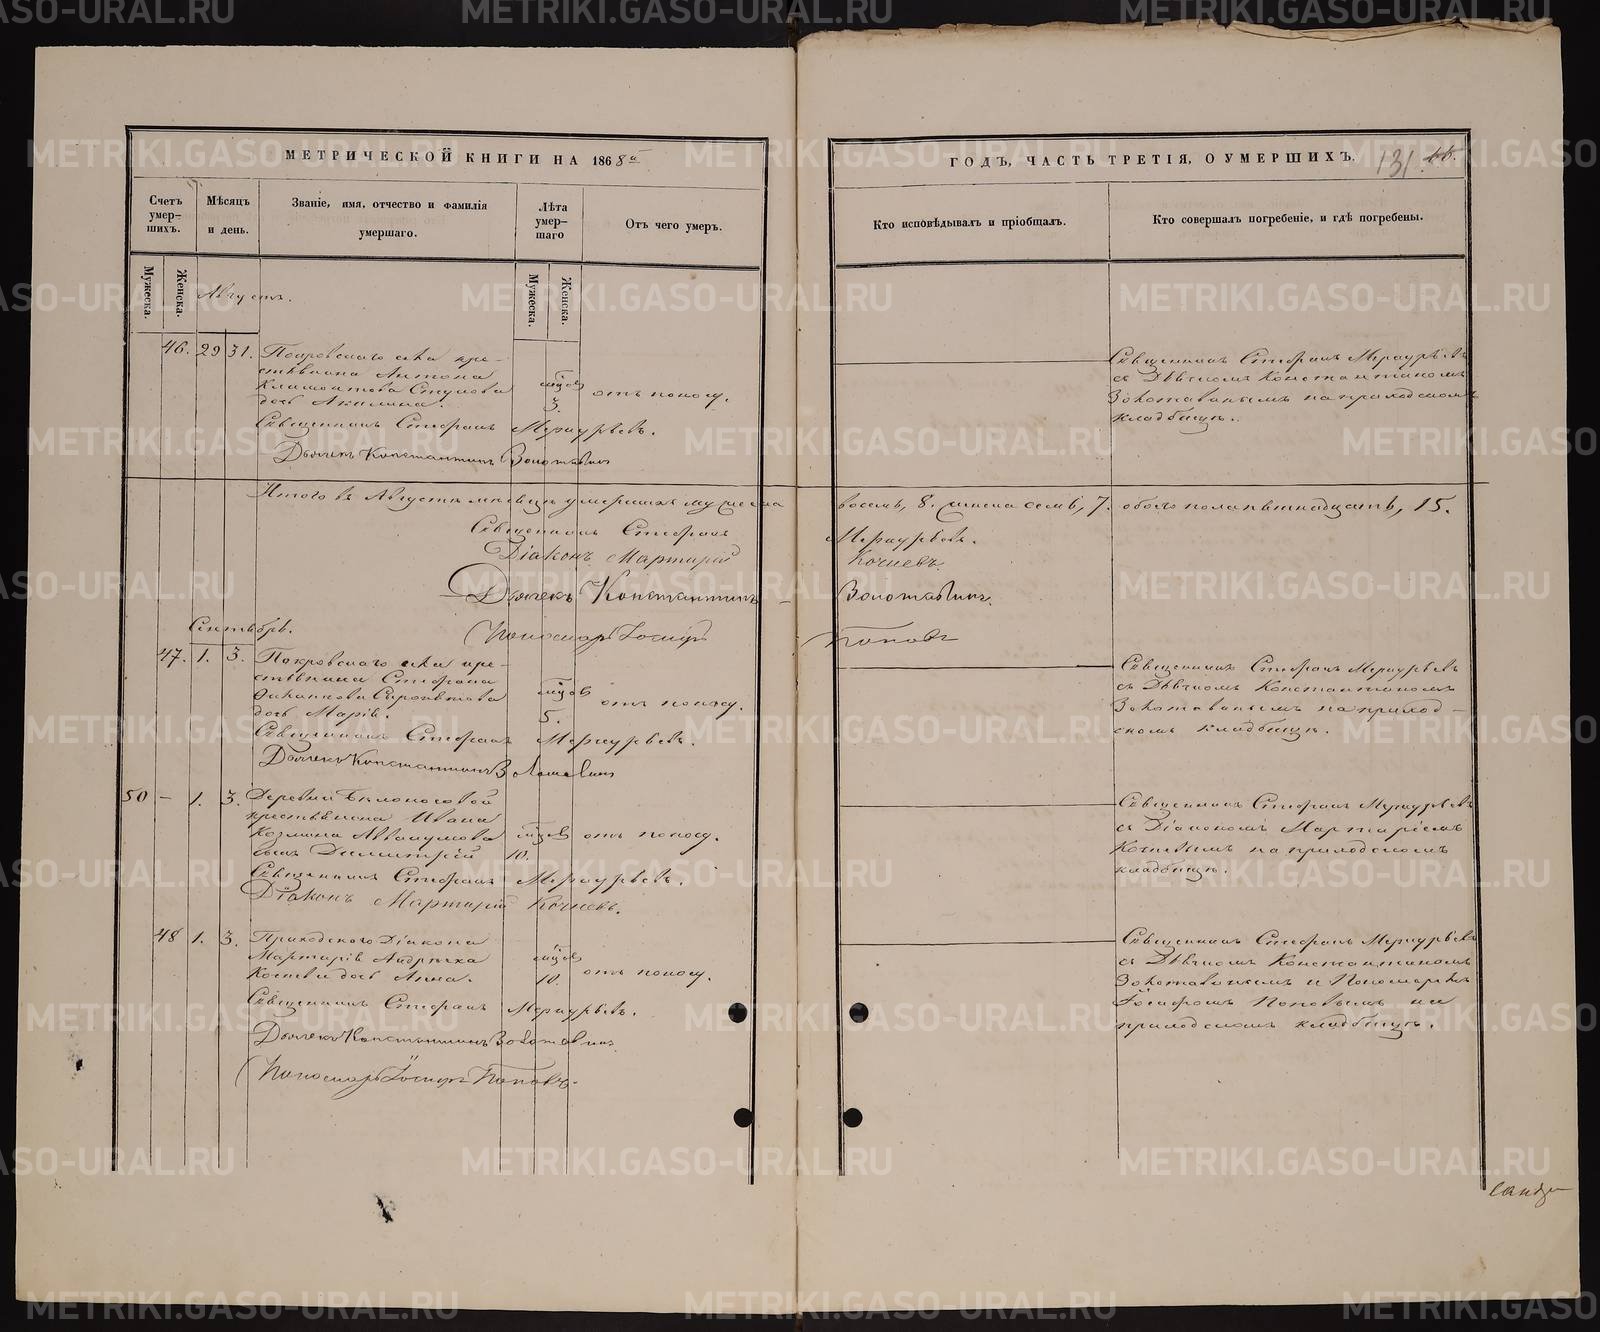 МЕТРИЧЕСКОЙ КНИГИ НА 1868й
ГОДЪ, ЧАСТЬ ТРЕТІЯ, О УМЕРШИХЪ.
131
Счетъ умер-шихъ.
Мѣсяцъ и день.
Званіе, имя, отчество и фамилія умершаго.
Лѣта умер-шаго
Отъ чего умеръ.
Кто исповѣдывалъ и пріобщалъ.
Кто совершалъ погребеніе, и гдѣ погребены.
Мужеска.
Женска.
Мужеска.
Женска.
Августъ.
46. 29 31.
Покровскаго села кре-
стьянина Антона
Климонтова Ступова
дочь Акилина.
мцов
3.
отъ поносу.
Священникъ Стефанъ Меркурьевъ
съ Дьячкомъ Константиномъ
Золотавинымъ на приходскомъ
кладбищѣ.
Священникъ Стефанъ Меркурьевъ.
Дьячекъ Константинъ Золотавинъ
Итого въ Августѣ мѣсяцѣ умершихъ мужеска
восемь, 8. женска семь, 7. обоего пола пятнадцать, 15.
Священникъ Стефанъ Меркурьевъ.
Діаконъ Мартирій Кочневъ.
Дьячекъ Константинъ Золотавинъ.
Пономарь Іосифъ Поповъ
Сентябрь.
47. 1. 3.
Покровскаго села кре-
стьянина Стефана
дочь Марія.
мцов
5.
отъ поносу.
Священникъ Стефанъ Меркурьевъ
съ Дьячкомъ Константиномъ
Золотавинымъ на приход-
скомъ кладбищѣ.
Священникъ Стефанъ Меркурьевъ.
Дьячекъ Константинъ Золотавинъ
50 - 1. 3.
Деревни Белоносовой
крестьянина Ивана
Козмина Аввакумова
сынъ Димитрій
мцов
10.
отъ поносу.
Священникъ Стефанъ Меркурьевъ
съ Діакономъ Мартиріемъ
Кочневымъ на приходскомъ
кладбищѣ.
Священникъ Стефанъ Меркурьевъ.
Діаконъ Мартирій Кочневъ.
48 1. 3.
Приходскаго Діакона
Мартирія Андреева
Кочнева дочь Анна.
мцов
10.
отъ поносу.
Священникъ Стефанъ Меркурьевъ
съ Дьячкомъ Константиномъ
Золотавинымъ и Пономаремъ
Іосифомъ Поповымъ на
приходскомъ кладбищѣ.
Священникъ Стефанъ Меркурьевъ.
Дьячекъ Константинъ Золотавинъ
Пономарь Іосифъ Поповъ.
METRIKI.GASO-URAL.RU